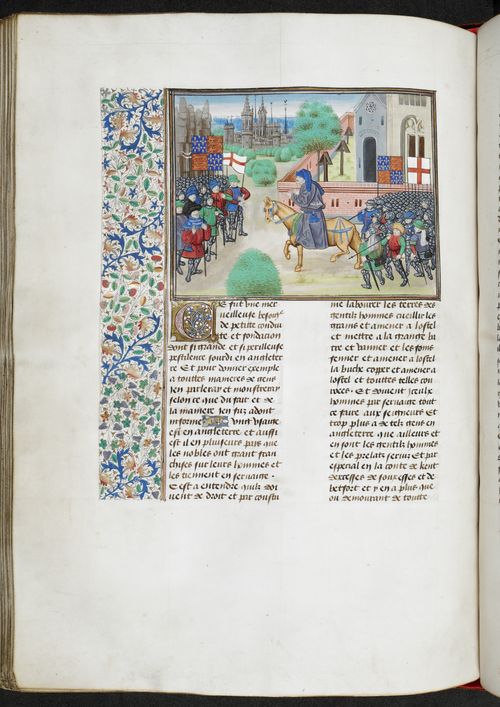 Ce fut une mer
ueilleuse besoigne
de petite condui
te et fondacion
dont si grande et si perilleuse
pestilence sourdi en angleter
re Et pour donner exemple
a toutes manieres de gens
Jen parleray et monstreray
selon ce que du fait et de
la maniere Jen fuz adont
informe Ung usaige
est en angleterre et aussi
est il en pluiseurs pais que
les nobles ont grant fran
chises sur leurs hommes et
les tiennent en servaige.
Cest a entendre quilz doi
uent de droit et par coustu
me labourer les terres des
gentilz hommes cueillir les
grains et amener a lostel
et mettre a la grange bat
tre et vanner et les foins
fenner et amener a lostel
la buche coper et amener a
lostel et touttes telles cou
wees. Et doivent iceulx
hommes par servaige tout
ce faire aux seigneurs Et
trop plus a de telz gens en
angleterre que ailleurs et
en sont les gentilz hommes
et les prelatz servis Et par
especial en la conte de kent
dexesses de souxesses et de
betfort et y en a plus que
ou demourant de toute